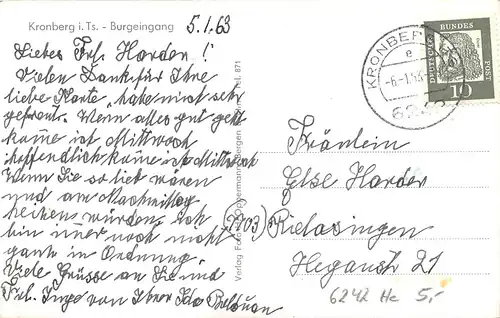 Kronberg i. Ts. - Burgeingang
5.1.63
Liebes Frl. Harder!
Vielen Dank für Ihre
liebe Karte, habe mich sehr
gefreut. Wenn alles gut geht
kame ich Mittwoch
hoffendlich kame ich Mittwoch
Wenn Sie so lieb wären
und am Nachmittag
heitzen würden. Ich
bin imer noch nicht
ganz in Ordnung.
Viele Grüsse an Sie und
Frl. Inge von Ihrer Ida
Verlag Foto
KRONBERG
e
-6.-1.
624
DEUTSCHE BUNDESPOST
10
Fräulein
Else Harder
(7703) Rielasingen
Hegaustr 21
6242 He 5,-